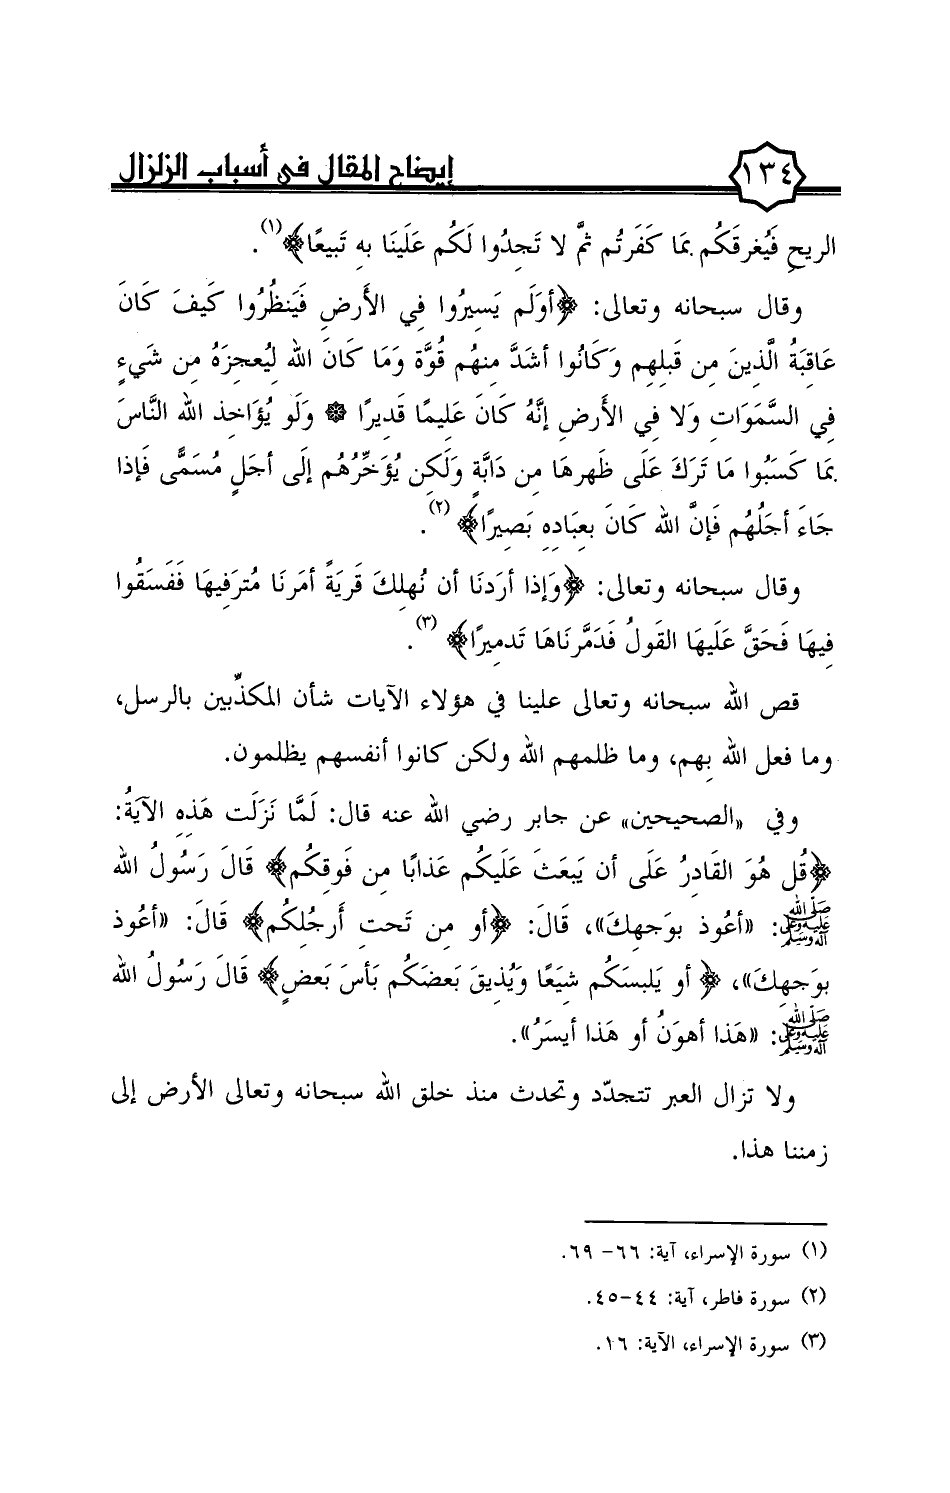 ١٣٤ إيضاح المقال في أسباب الزلزال
الريحِ فَيُغرقَكُم بمَا كَفَرتُم ثمَّ لا تَجدُوا لَكُم عَلَينَا به تَبيعًا﴾(١).
وقال سبحانه وتعالى: ﴿أوَلَم يَسيرُوا في الأَرض فَيَنظُرُوا كَيفَ كَانَ
عَاقبَةُ الَّذينَ من قَبلهم وَكَانُوا أشَدَّ منهُم قُوَّة وَمَا كَانَ الله ليُعجزَهُ من شَيءٍ
في السَّمَوَات وَلا في الأَرض إنَّهُ كَانَ عَليمًا قَديرًا * وَلَو يُؤَاخذ الله النَّاسَ
بمَا كَسَبُوا مَا تَرَكَ عَلَى ظَهرهَا من دَابَّة وَلَكن يُؤَخِّرُهُم إلَى أجَلٍ مُسَمًّى فَإذا
جَاءَ أجَلُهُم فَإنَّ الله كَانَ بعبَاده بَصيرًا﴾(٢).
وقال سبحانه وتعالى: ﴿وَإذا أرَدنَا أن نُهلكَ قَريَةً أمَرنَا مُترَفيهَا فَفَسَقُوا
فيهَا فَحَقَّ عَلَيهَا القَولُ فَدَمَّرنَاهَا تَدميرًا﴾(٣).
قص الله سبحانه وتعالى علينا في هؤلاء الآيات شأن المكذّبين بالرسل،
وما فعل الله بهم، وما ظلمهم الله ولكن كانوا أنفسهم يظلمون.
وفي «الصحيحين» عن جابر رضي الله عنه قال: لَمَّا نَزَلَت هَذه الآيَةُ:
﴿قُل هُوَ القَادرُ عَلَى أن يَبعَثَ عَلَيكُم عَذابًا من فَوقكُم﴾ قَالَ رَسُولُ الله
صلى الله عليه وعلى آله وسلم: «أعُوذ بوَجهكَ»، قَالَ: ﴿أو من تَحت أَرجُلكُم﴾ قَالَ: «أعُوذ
بوَجهكَ»، ﴿أو يَلبسَكُم شيَعًا وَيُذيقَ بَعضَكُم بَأسَ بَعضٍ﴾ قَالَ رَسُولُ الله
صلى الله عليه وعلى آله وسلم: «هَذا أهوَنُ أو هَذا أيسَرُ».
ولا تزال العبر تتجدّد وتحدث منذ خلق الله سبحانه وتعالى الأرض إلى
زمننا هذا.
(١) سورة الإسراء، آية: ٦٦- ٦٩.
(٢) سورة فاطر، آية: ٤٤-٤٥.
(٣) سورة الإسراء، الآية: ١٦.